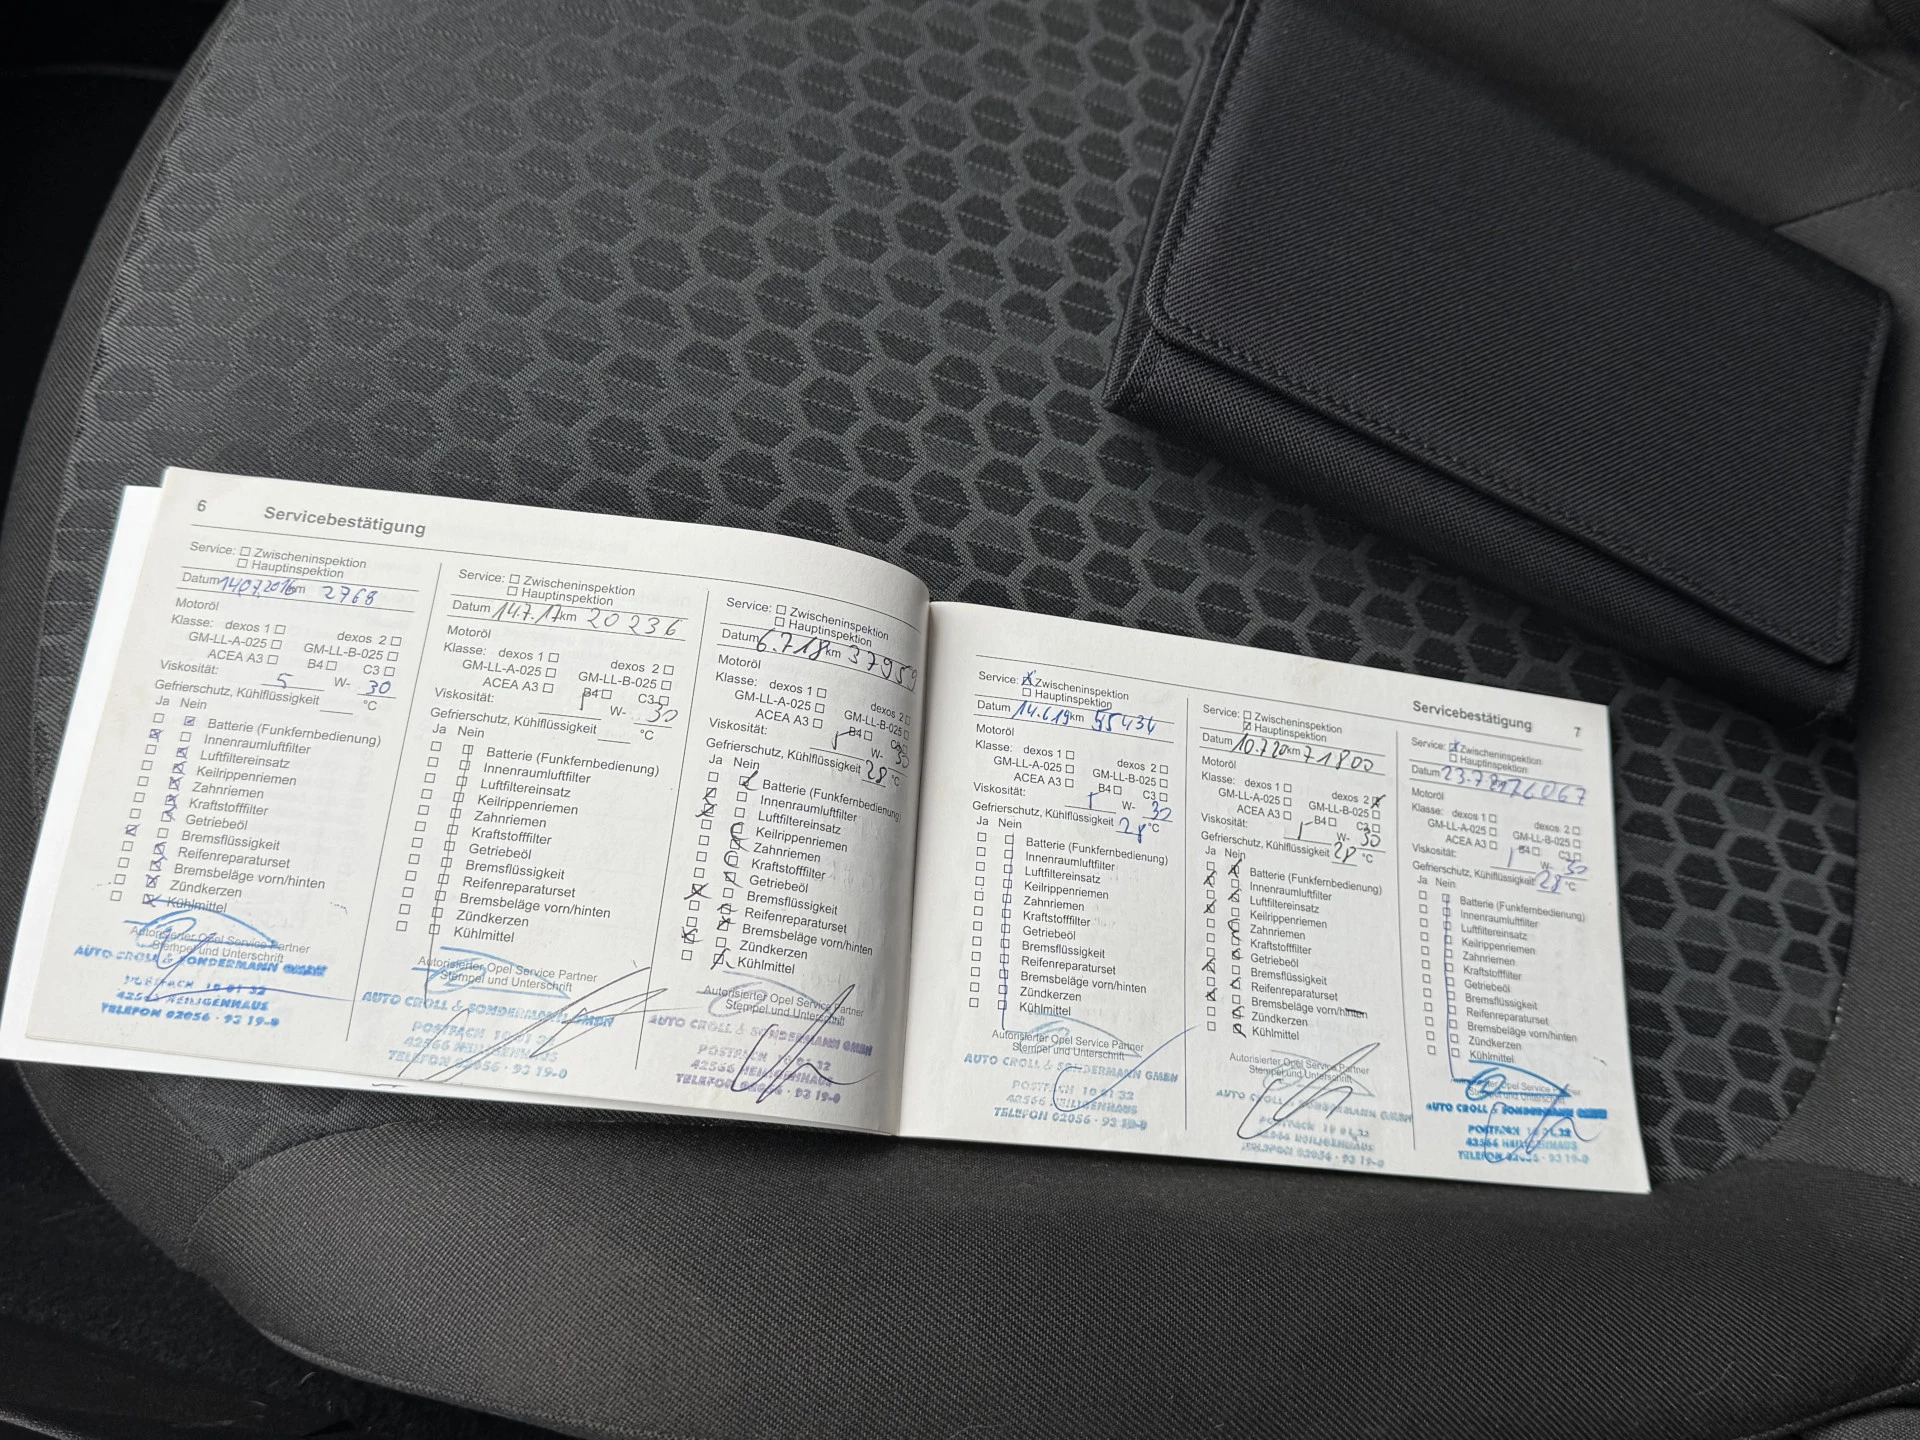 6 Servicebestätigung
Service: Zwischeninspektion
Hauptinspektion
Datum 14.07.2016 km 2768
Motoröl
Klasse: dexos 1 dexos 2
GM-LL-A-025 GM-LL-B-025
ACEA A3 B4 C3
Viskosität: 5 W- 30
Gefrierschutz, Kühlflüssigkeit °C
Ja Nein
Batterie (Funkfernbedienung)
Innenraumluftfilter
Luftfiltereinsatz
Keilrippenriemen
Zahnriemen
Kraftstofffilter
Getriebeöl
Bremsflüssigkeit
Reifenreparaturset
Bremsbeläge vorn/hinten
Zündkerzen
Kühlmittel
Autorisierter Opel Service Partner
Stempel und Unterschrift
AUTO CROLL & SONDERMANN GMBH
POSTFACH 10 01 32
42566 HEILIGENHAUS
TELEFON 02056 · 93 19-0
Service: Zwischeninspektion
Hauptinspektion
Datum 14.7.17 km 20236
Motoröl
Klasse: dexos 1 dexos 2
GM-LL-A-025 GM-LL-B-025
ACEA A3 B4 C3
Viskosität: W- 30
Gefrierschutz, Kühlflüssigkeit °C
Ja Nein
Batterie (Funkfernbedienung)
Innenraumluftfilter
Luftfiltereinsatz
Keilrippenriemen
Zahnriemen
Kraftstofffilter
Getriebeöl
Bremsflüssigkeit
Reifenreparaturset
Bremsbeläge vorn/hinten
Zündkerzen
Kühlmittel
Autorisierter Opel Service Partner
Stempel und Unterschrift
AUTO CROLL & SONDERMANN GMBH
POSTFACH 10 01 32
42566 HEILIGENHAUS
TELEFON 02056 · 93 19-0
Service: Zwischeninspektion
Hauptinspektion
Datum 6.7.18 km 37959
Motoröl
Klasse: dexos 1 dexos 2
GM-LL-A-025 GM-LL-B-025
ACEA A3 B4 C3
Viskosität: W- 30
Gefrierschutz, Kühlflüssigkeit 28 °C
Ja Nein
Batterie (Funkfernbedienung)
Innenraumluftfilter
Luftfiltereinsatz
Keilrippenriemen
Zahnriemen
Kraftstofffilter
Getriebeöl
Bremsflüssigkeit
Reifenreparaturset
Bremsbeläge vorn/hinten
Zündkerzen
Kühlmittel
Autorisierter Opel Service Partner
Stempel und Unterschrift
AUTO CROLL & SONDERMANN GMBH
POSTFACH 10 01 32
42566 HEILIGENHAUS
TELEFON 02056 · 93 19-0
Servicebestätigung 7
Service: Zwischeninspektion
Hauptinspektion
Datum 14.6.19 km 55434
Motoröl
Klasse: dexos 1 dexos 2
GM-LL-A-025 GM-LL-B-025
ACEA A3 B4 C3
Viskosität: W- 30
Gefrierschutz, Kühlflüssigkeit 28 °C
Ja Nein
Batterie (Funkfernbedienung)
Innenraumluftfilter
Luftfiltereinsatz
Keilrippenriemen
Zahnriemen
Kraftstofffilter
Getriebeöl
Bremsflüssigkeit
Reifenreparaturset
Bremsbeläge vorn/hinten
Zündkerzen
Kühlmittel
Autorisierter Opel Service Partner
Stempel und Unterschrift
AUTO CROLL & SONDERMANN GMBH
POSTFACH 10 01 32
42566 HEILIGENHAUS
TELEFON 02056 · 93 19-0
Service: Zwischeninspektion
Hauptinspektion
Datum 10.7.20 km 71800
Motoröl
Klasse: dexos 1 dexos 2
GM-LL-A-025 GM-LL-B-025
ACEA A3 B4 C3
Viskosität: W- 30
Gefrierschutz, Kühlflüssigkeit 28 °C
Ja Nein
Batterie (Funkfernbedienung)
Innenraumluftfilter
Luftfiltereinsatz
Keilrippenriemen
Zahnriemen
Kraftstofffilter
Getriebeöl
Bremsflüssigkeit
Reifenreparaturset
Bremsbeläge vorn/hinten
Zündkerzen
Kühlmittel
Autorisierter Opel Service Partner
Stempel und Unterschrift
AUTO CROLL & SONDERMANN GMBH
POSTFACH 10 01 32
42566 HEILIGENHAUS
TELEFON 02056 · 93 19-0
Service: Zwischeninspektion
Hauptinspektion
Datum 23.7 76067
Motoröl
Klasse: dexos 1 dexos 2
GM-LL-A-025 GM-LL-B-025
ACEA A3 B4 C3
Viskosität: W- 30
Gefrierschutz, Kühlflüssigkeit 28 °C
Ja Nein
Batterie (Funkfernbedienung)
Innenraumluftfilter
Luftfiltereinsatz
Keilrippenriemen
Zahnriemen
Kraftstofffilter
Getriebeöl
Bremsflüssigkeit
Reifenreparaturset
Bremsbeläge vorn/hinten
Zündkerzen
Kühlmittel
Autorisierter Opel Service Partner
Stempel und Unterschrift
AUTO CROLL & SONDERMANN GMBH
POSTFACH 10 01 32
42566 HEILIGENHAUS
TELEFON 02056 · 93 19-0